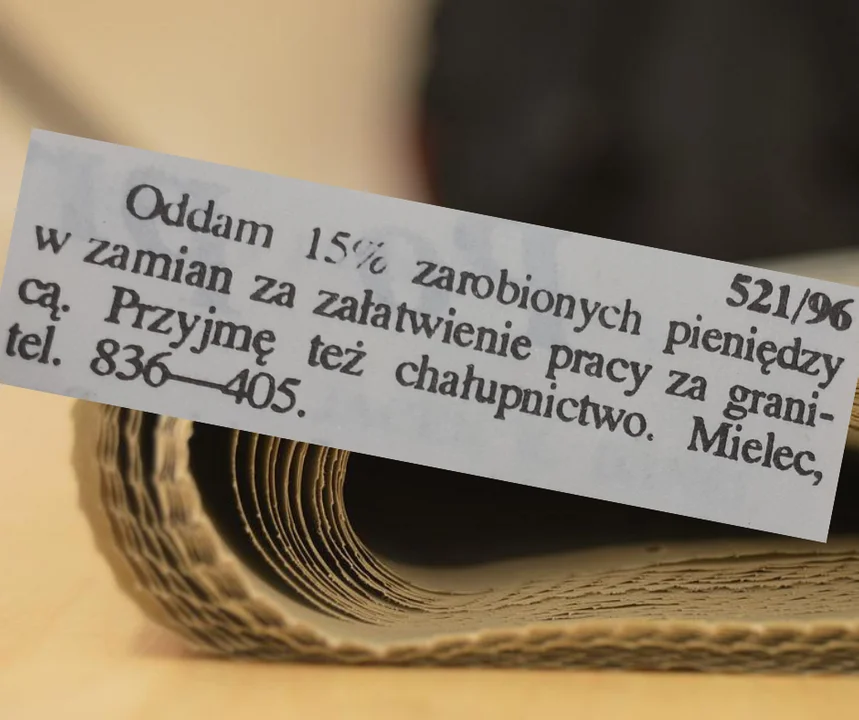 521/96
Oddam 15% zarobionych pieniędzy
w zamian za załatwienie pracy za grani-
cą. Przyjmę też chałupnictwo. Mielec,
tel. 836—405.